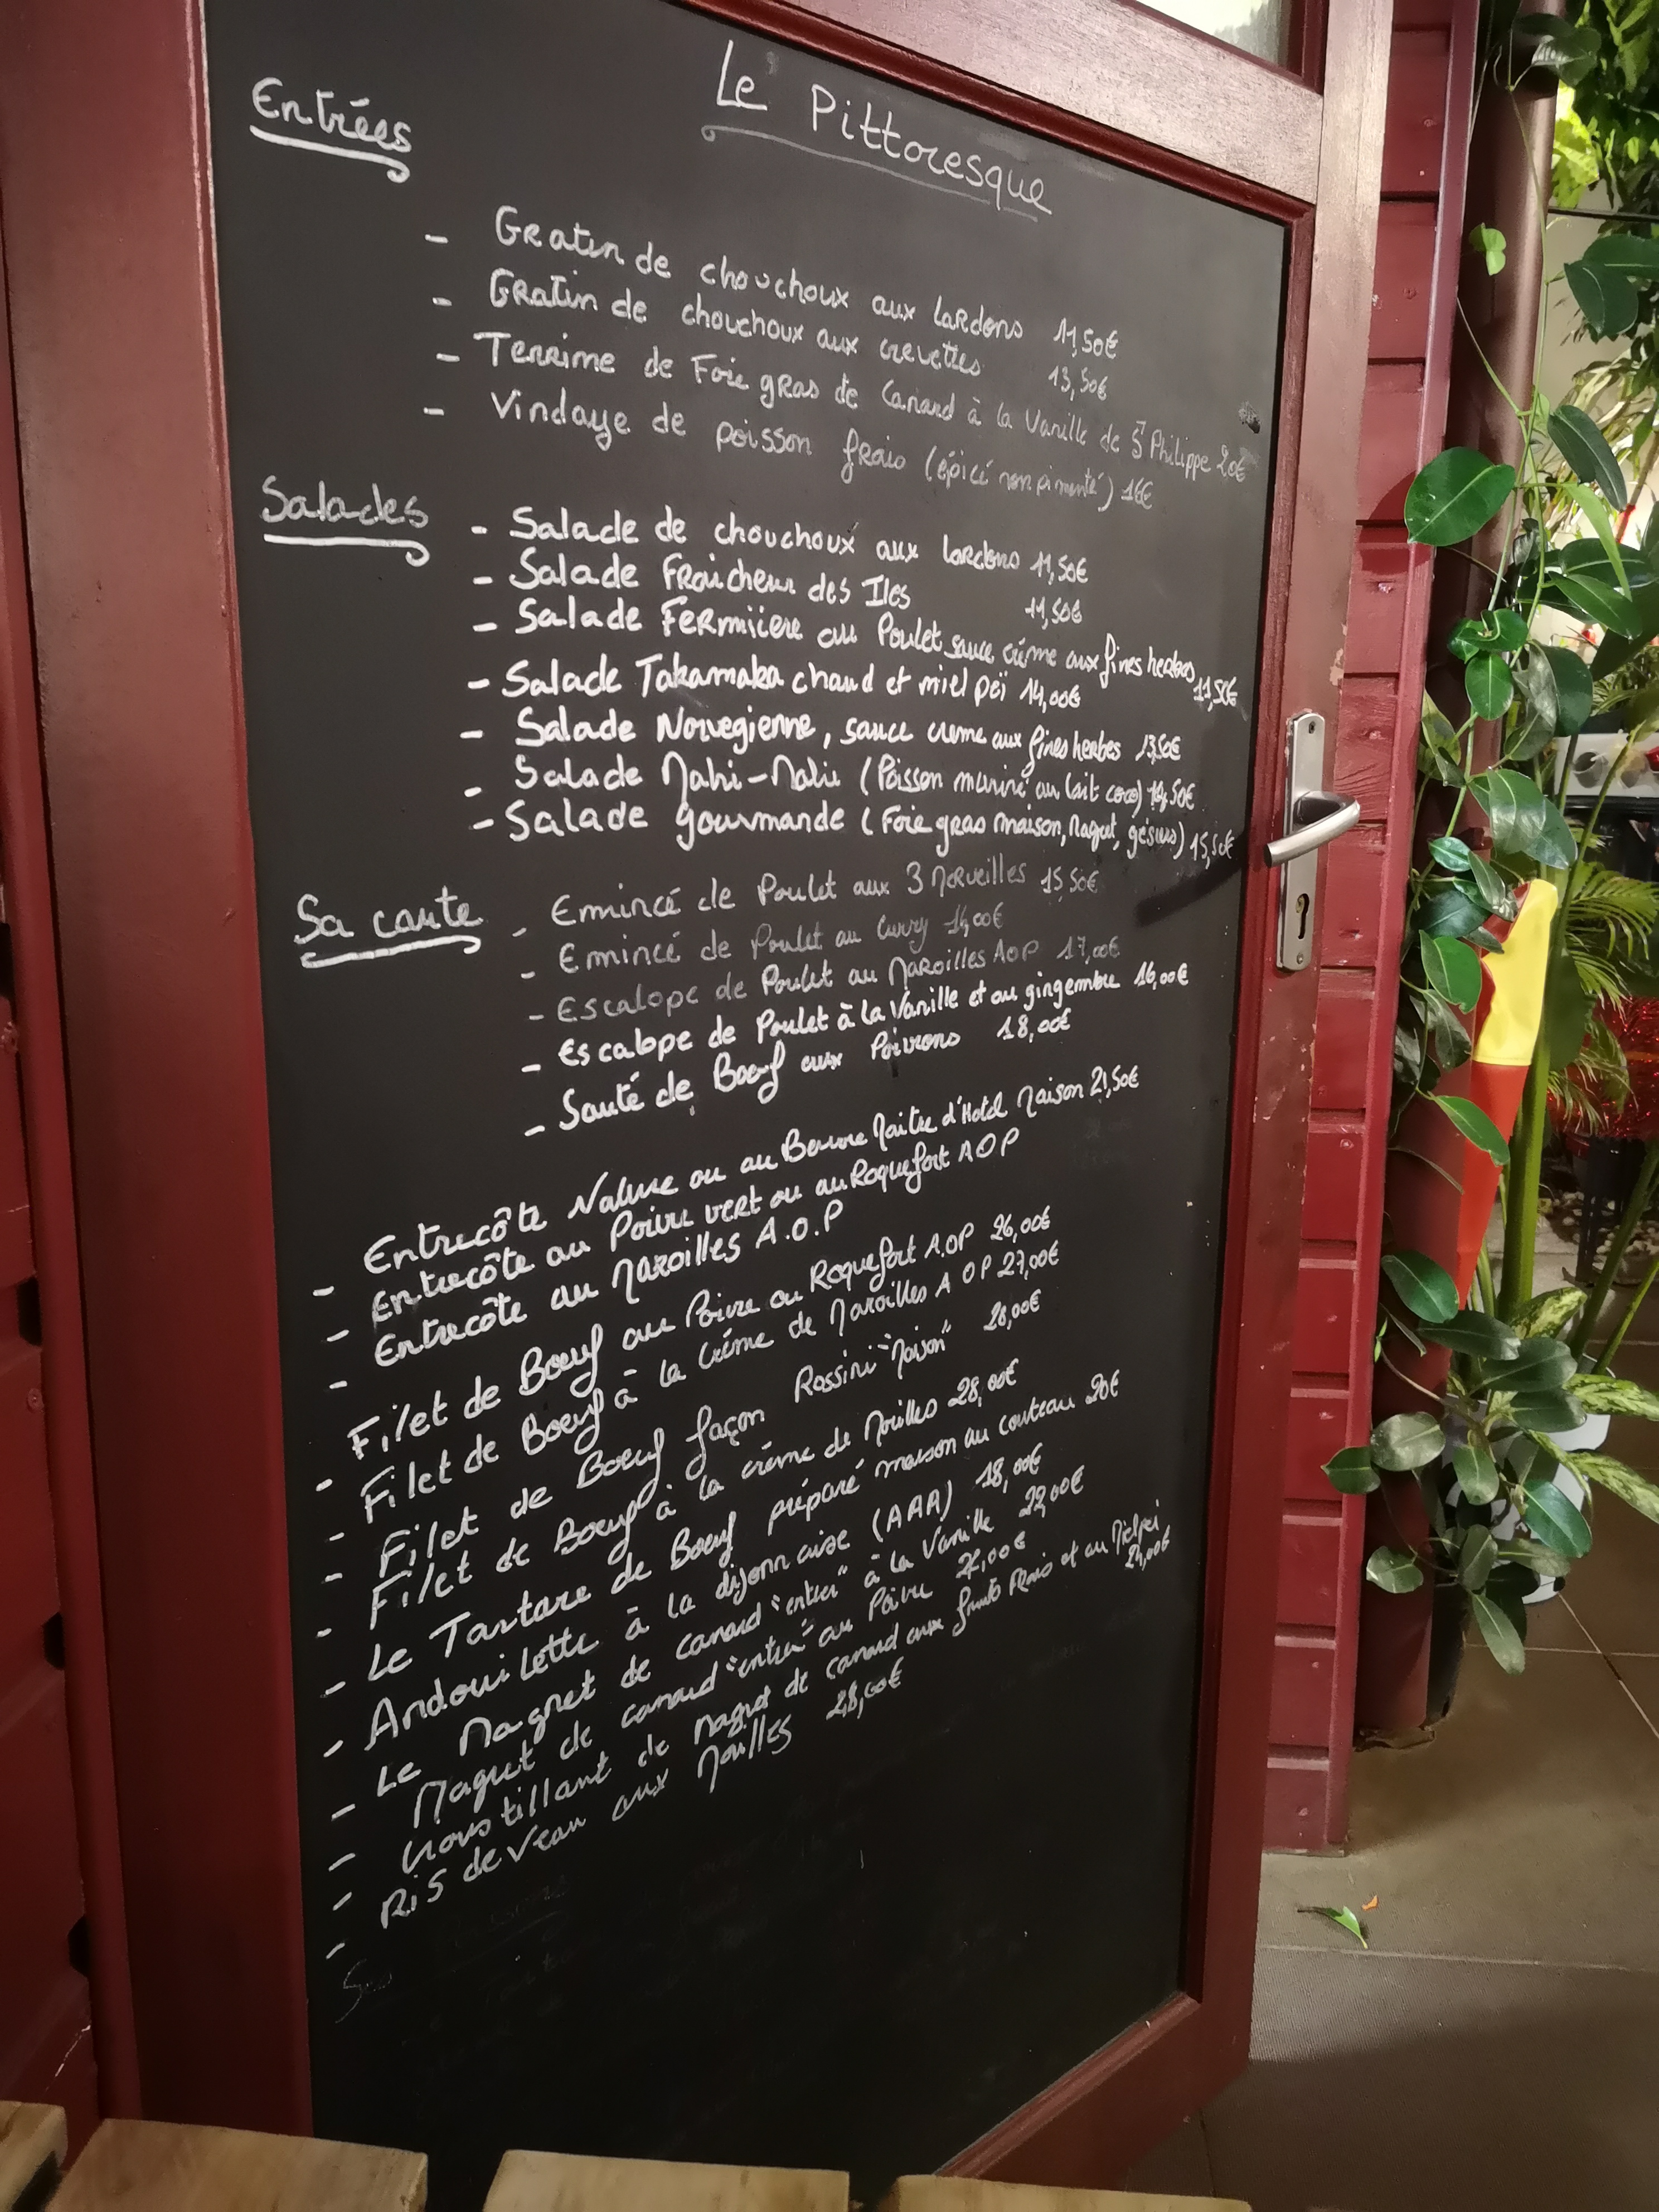 Le Pittoresque
Entrées
- Gratin de chouchoux aux lardons 11,50€
- Gratin de chouchoux aux crevettes 13,50€
- Terrine de Foie gras de Canard à la Vanille de St Philippe 20€
- Vindaye de poisson frais (épicé non pimenté) 16€
Salades
- Salade de chouchoux aux lardons 11,50€
- Salade Fraicheur des Iles 11,50€
- Salade Fermiière au Poulet sauce crème aux fines herbes 11,50€
- Salade Takamaka chaud et miel péï 14,00€
- Salade Norvegienne, sauce creme aux fines herbes 13,50€
- Salade Mahi-Mahi (Poisson mariné au lait coco) 14,50€
- Salade gourmande (Foie gras maison, Magret, gésiers) 15,50€
Sa carte
- Emincé de Poulet aux 3 Merveilles 15,50€
- Emincé de Poulet au Curry 14,00€
- Escalope de Poulet au Maroilles AOP 17,00€
- Escalope de Poulet à la Vanille et au gingembre 16,00€
- Sauté de Boeuf aux Poivrons 18,00€
- Entrecôte Nature ou au Beurre Maitre d'Hotel Maison 21,50€
- Entrecôte au Poivre vert ou au Roquefort AOP
- Entrecôte au Maroilles A.O.P
- Filet de Boeuf au Poivre ou Roquefort A.OP 26,00€
- Filet de Boeuf à la Crème de Maroilles A OP 27,00€
- Filet de Boeuf façon Rossini "Maison" 28,00€
- Filet de Boeuf à la crème de Morilles 28,00€
- Le Tartare de Boeuf préparé maison au couteau 20€
- Andouillette à la dijonnaise (AAA) 18,00€
- Le Magret de canard "entier" à la Vanille 22,00€
- Magret de canard "entier" au Poivre 22,00€
- Croustillant de Magret de canard aux fruits Frais et au Miel péï 24,00€
- Ris de veau aux Morilles 28,00€